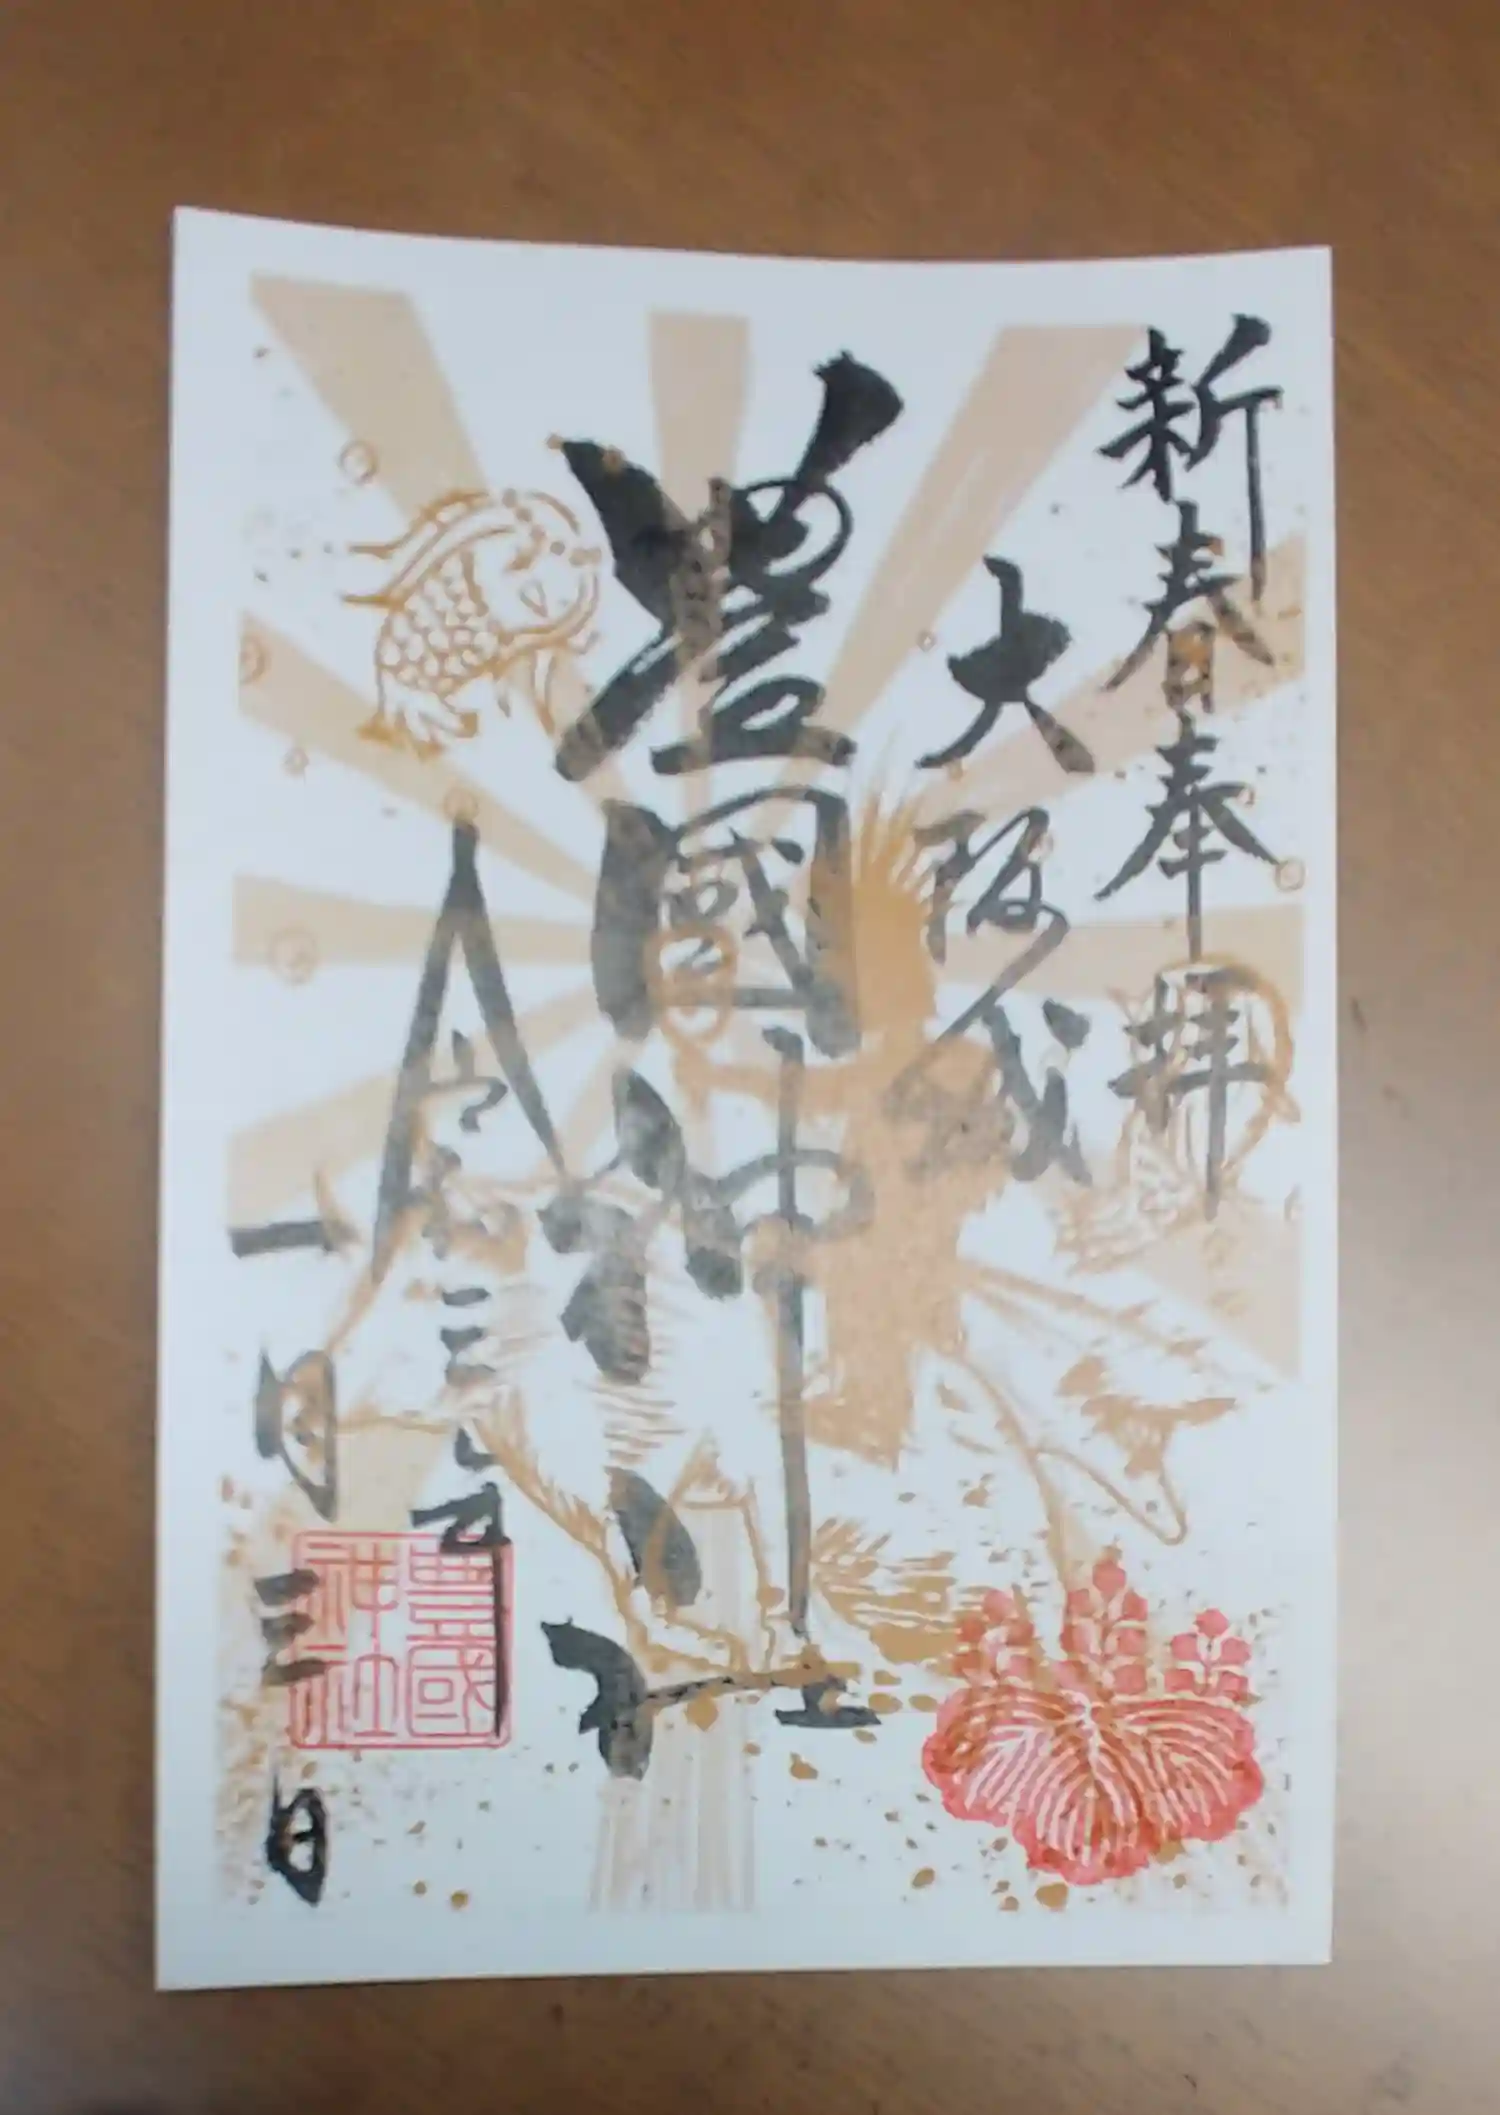 新春奉拝
大阪城
豊國神社
令和三年
一月三日
豊國
神社